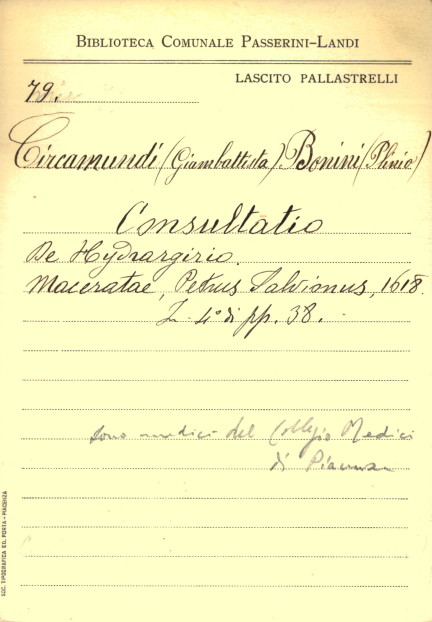 BIBLIOTECA COMUNALE PASSERINI-LANDI
LASCITO PALLASTRELLI
79.
Circamundi (Giambattista) Bonini (Plinio)
Consultatio
De Hydrargirio.
Maceratae, Petrus Salvimus, 1618.
4° di pp. 38.
sono medici del Collegio Medici
di Piacenza
SOC. TIPOGRAFICA ED. PORTA - PIACENZA